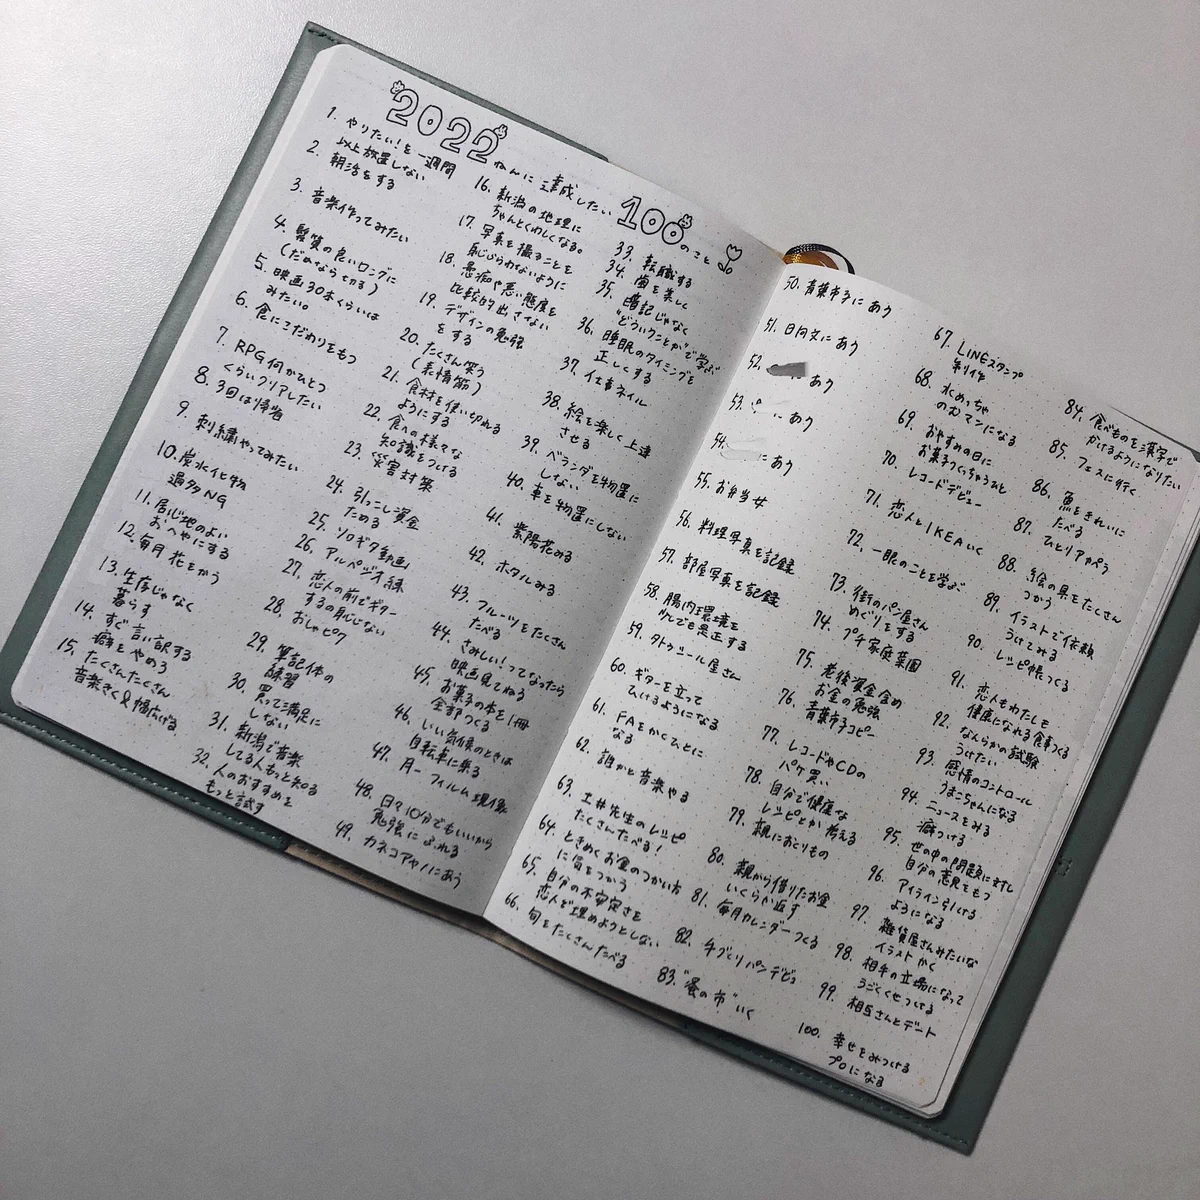 2022ねんに達成したい100のこと
1. やりたい!を一週間
以上放置しない
2. 朝活をする
3. 音楽作ってみたい
4. 髪質の良いロングに
(だめなら切る)
5. 映画30本くらいは
みたい。
6. 食にこだわりをもつ
7. RPG何かひとつ
くらいクリアしたい
8. 3回は帰省
9. 刺繍やってみたい
10. 炭水化物
過多NG
11. 居心地のよい
おへやにする
12. 毎月花をかう
13. 生存じゃなく
暮らす
14. すぐ言い訳する
癖をやめる
15. たくさんたくさん
音楽きく&幅広げる
16. 新潟の地理に
ちゃんとくわしくなる。
17. 写真を撮ることを
恥じらわないように
18. 愚痴や悪い態度を
比較的出さない
19. デザインの勉強
をする
20. たくさん笑う
(表情筋)
21. 食材を使い切れる
ようにする
22. 食への様々な
知識をつける
23. 災害対策
24. 引っこし資金
ためる
25. ソロギタ動画
26. アルペジオ練
27. 恋人の前でギター
するの恥じない
28. おしゃピク
29. 筆記体の
練習
30. 買って満足に
しない
31. 新潟で音楽
してる人もっと知る
32. 人のおすすめを
もっと試す
33. 転職する
34. 歯を美しく
35. 暗記じゃなく
"どういうことか"で学ぶ
36. 睡眠のタイミングを
正しくする
37. 仕事ネイル
38. 絵を楽しく上達
させる
39. ベランダを物置に
しない
40. 車を物置にしない
41. 紫陽花みる
42. ホタルみる
43. フルーツをたくさん
たべる
44. さみしい!ってなったら
映画見てねる
45. お菓子の本を1冊
全部つくる
46. いい気候のときは
自転車に乗る
47. 月一フィルム現像
48. 日々10分でもいいから
勉強にふれる
49. カネコアヤノにあう
50. 青葉市子にあう
51. 日向文にあう
52. にあう
53. にあう
54. にあう
55. お弁当女
56. 料理写真を記録
57. 部屋写真を記録
58. 腸内環境を
59. タトゥシール屋さん
60. ギターを立って
ひけるようになる
61. FAをかくひとに
なる
62. 誰かと音楽やる
63. 土井先生のレシピ
たくさんたべる!
64. ときめくお金のつかい方
に気をつかう
65. 自分の不安定さを
恋人で埋めようとしない
66. 旬をたくさんたべる
67. LINEスタンプ
制作
68. 水めっちゃ
のむマンになる
69. おやすみの日に
お菓子つくっちゃうひと
70. レコードデビュー
71. 恋人とIKEAいく
72. 一眼のことを学ぶ
73. 街のパン屋さん
めぐりをする
74. プチ家庭菜園
75. 老後資金含め
お金の勉強
76. 青葉市子コピー
77. レコードやCDの
パケ買い
78. 自分で健康な
レシピとか考える
79. 親におくりもの
80. 親から借りたお金
いくらか返す
81. 毎月カレンダーつくる
82. 手づくりパンデビュ
83. "蚤の市"いく
84. 食べものを漢字で
かけるようになりたい
85. フェスに行く
86. 魚をきれいに
たべる
87. ひとりアカペラ
88. 絵の具をたくさん
つかう
89. イラストで依頼
うけてみる
90. レシピ帳つくる
91. 恋人もわたしも
健康になれる食事つくる
92. なんらかの試験
うけたい
93. 感情のコントロール
うまこちゃんになる
94. ニュースをみる
癖つける
95. 世の中の問題に対し
自分の意見をもつ
96. アイライン引ける
ようになる
97. 雑貨屋さんみたいな
イラストかく
98. 相手の立場になって
うごくくせつける
99. 相互さんとデート
100. 幸せをみつける
プロになる